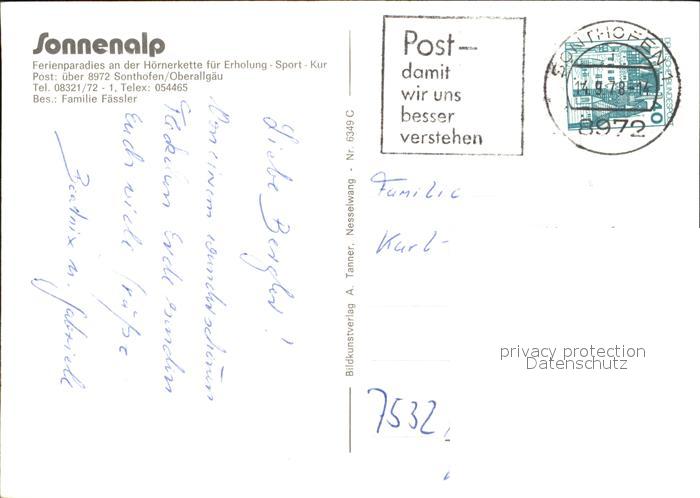 Sonnenalp
Ferienparadies an der Hörnerkette für Erholung - Sport - Kur
Post: über 8972 Sonthofen/Oberallgäu
Tel. 08321/72 - 1, Telex: 054465
Bes.: Familie Fässler
Liebe Bergles!
Von einem wunderschönen
Fleckchen Erde senden
Euch viele Grüße
Beatrix u. Gabriele
Bildkunstverlag A. Tanner, Nesselwang - Nr. 6349 C
Post-
damit
wir uns
besser
verstehen
SONTHOFEN 1
14.9.78-14
8972
Familie
Karl-
7532,
privacy protection
Datenschutz